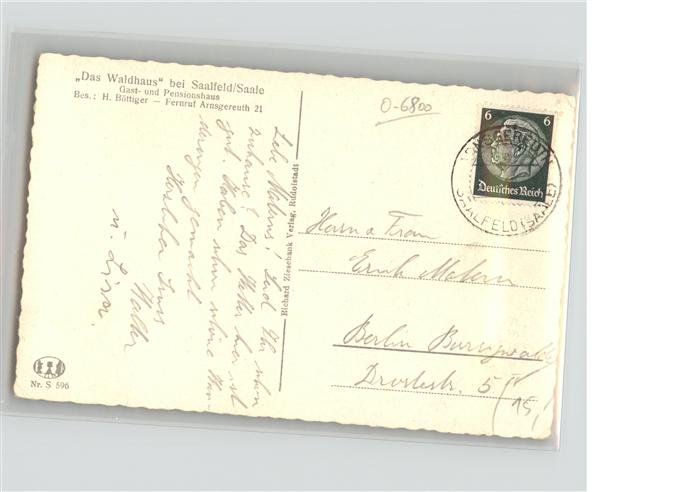 „Das Waldhaus“ bei Saalfeld/Saale
Gast- und Pensionshaus
Bes.: H. Böttiger — Fernruf Arnsgereuth 21
O-6800
6 6
Deutsches Reich
ARNSGEREUTH
SAALFELD (SAALE)
Liebe Materns! Seid Ihr schon
zuhause? Das Wetter hier ist
gut. Haben schon schöne Wan-
derungen gemacht
Herzlichen Gruss
Walter
u. Lissi.
Richard Zieschank Verlag, Rudolstadt
Herrn u Frau
Erich Matern
Berlin
Drostestr. 5 IV
(15)
Nr. S 596